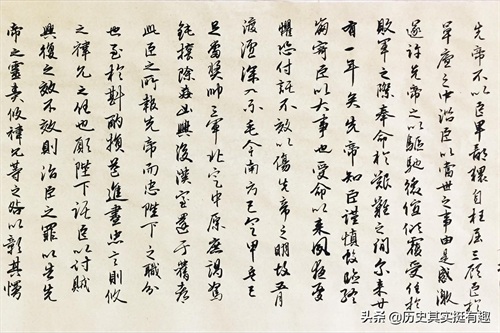 先帝不以臣卑鄙猥自枉屈三顧臣於
草廬之中諮臣以當世之事由是感激
遂許先帝之以驅馳後值傾覆受任於
敗軍之際奉命於艱難之間尔來廿
有一年矣先帝知臣謹慎故臨
崩寄臣以大事也受命以來夙夜憂
懼恐付託不效以傷先帝之明故五月
渡瀘深入不毛今南方已定甲兵已
足當獎帥三軍北定中原庶竭駑
鈍攘除姦凶興復漢室還于舊都
此臣之所報先帝而忠陛下之職分
也至於斟酌損益進盡忠言則攸
之禕允之任也願陛下託臣以討賊
興復之效不效則治臣之罪以告先
帝之靈責攸禕允等之咎以彰其慢
头条 @历史其实挺有趣